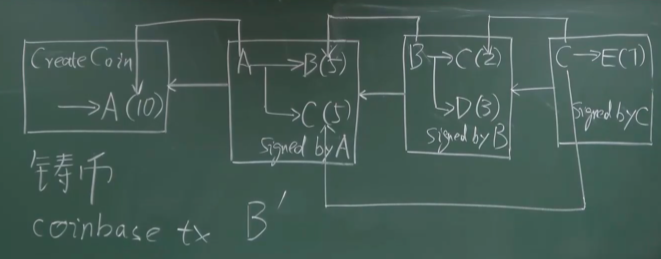 Create Coin
→A(10)
A→B(5)
→C(5)
Signed by A
B→C(2)
→D(3)
Signed by B
C→E(7)
Signed by C
铸币
coinbase tx
B'